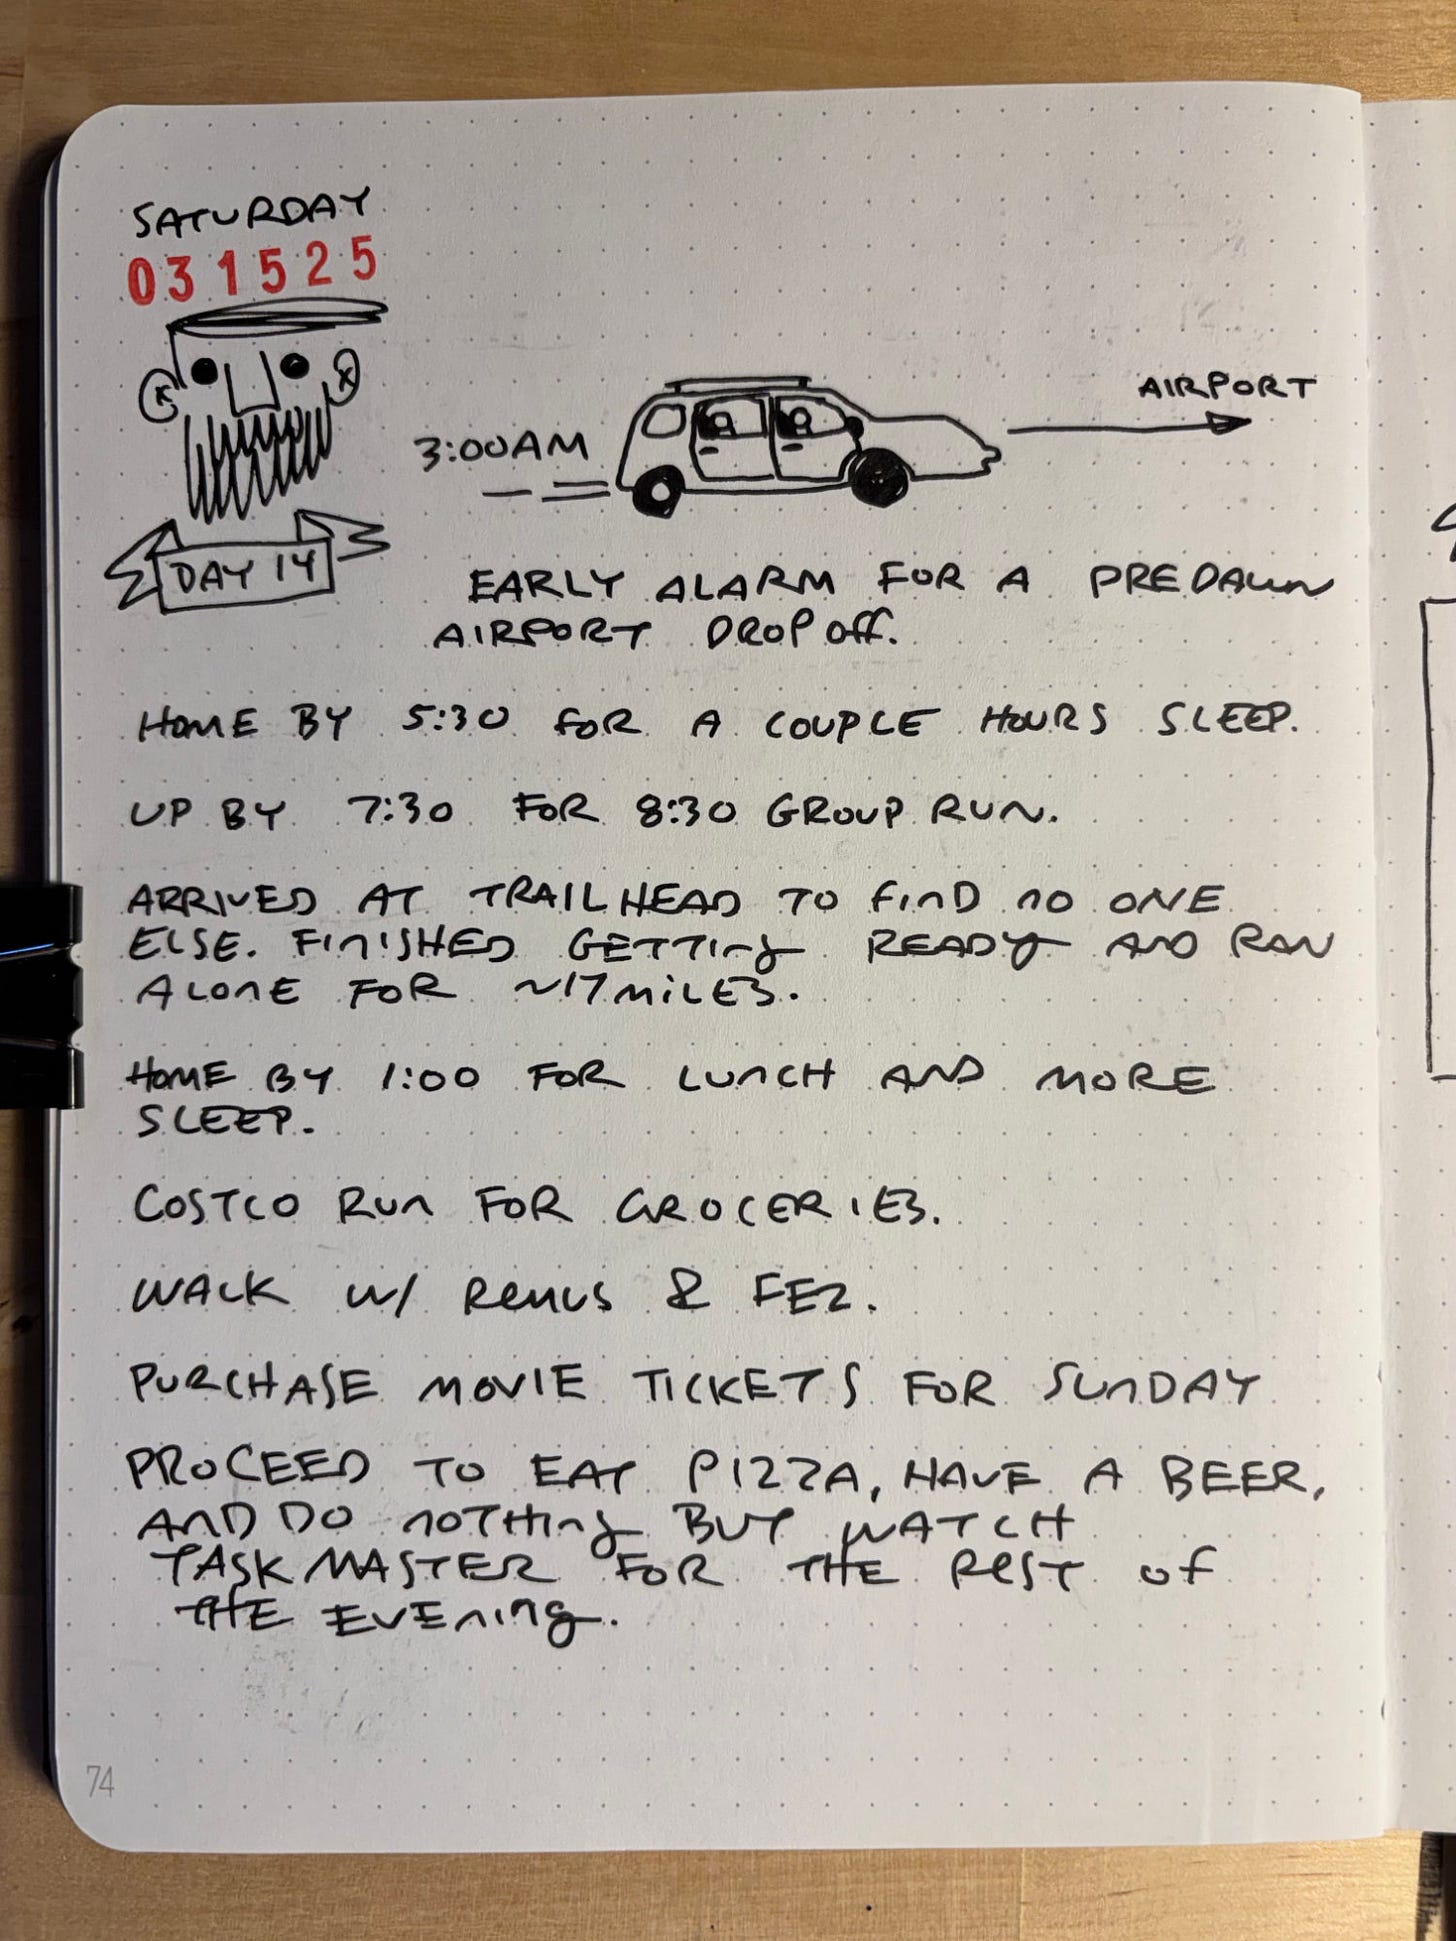 SATURDAY
031525
3:00AM
AIRPORT
DAY 14
EARLY ALARM FOR A PREDAWN
AIRPORT DROP OFF.
HOME BY 5:30 FOR A COUPLE HOURS SLEEP.
UP BY 7:30 FOR 8:30 GROUP RUN.
ARRIVED AT TRAILHEAD TO FIND NO ONE
ELSE. FINISHED GETTING READY AND RAN
ALONE FOR ~17 MILES.
HOME BY 1:00 FOR LUNCH AND MORE
SLEEP.
COSTCO RUN FOR GROCERIES.
WALK W/ REMUS & FEZ.
PURCHASE MOVIE TICKETS FOR SUNDAY
PROCEED TO EAT PIZZA, HAVE A BEER,
AND DO NOTHING BUT WATCH
TASKMASTER FOR THE REST OF
THE EVENING.
74